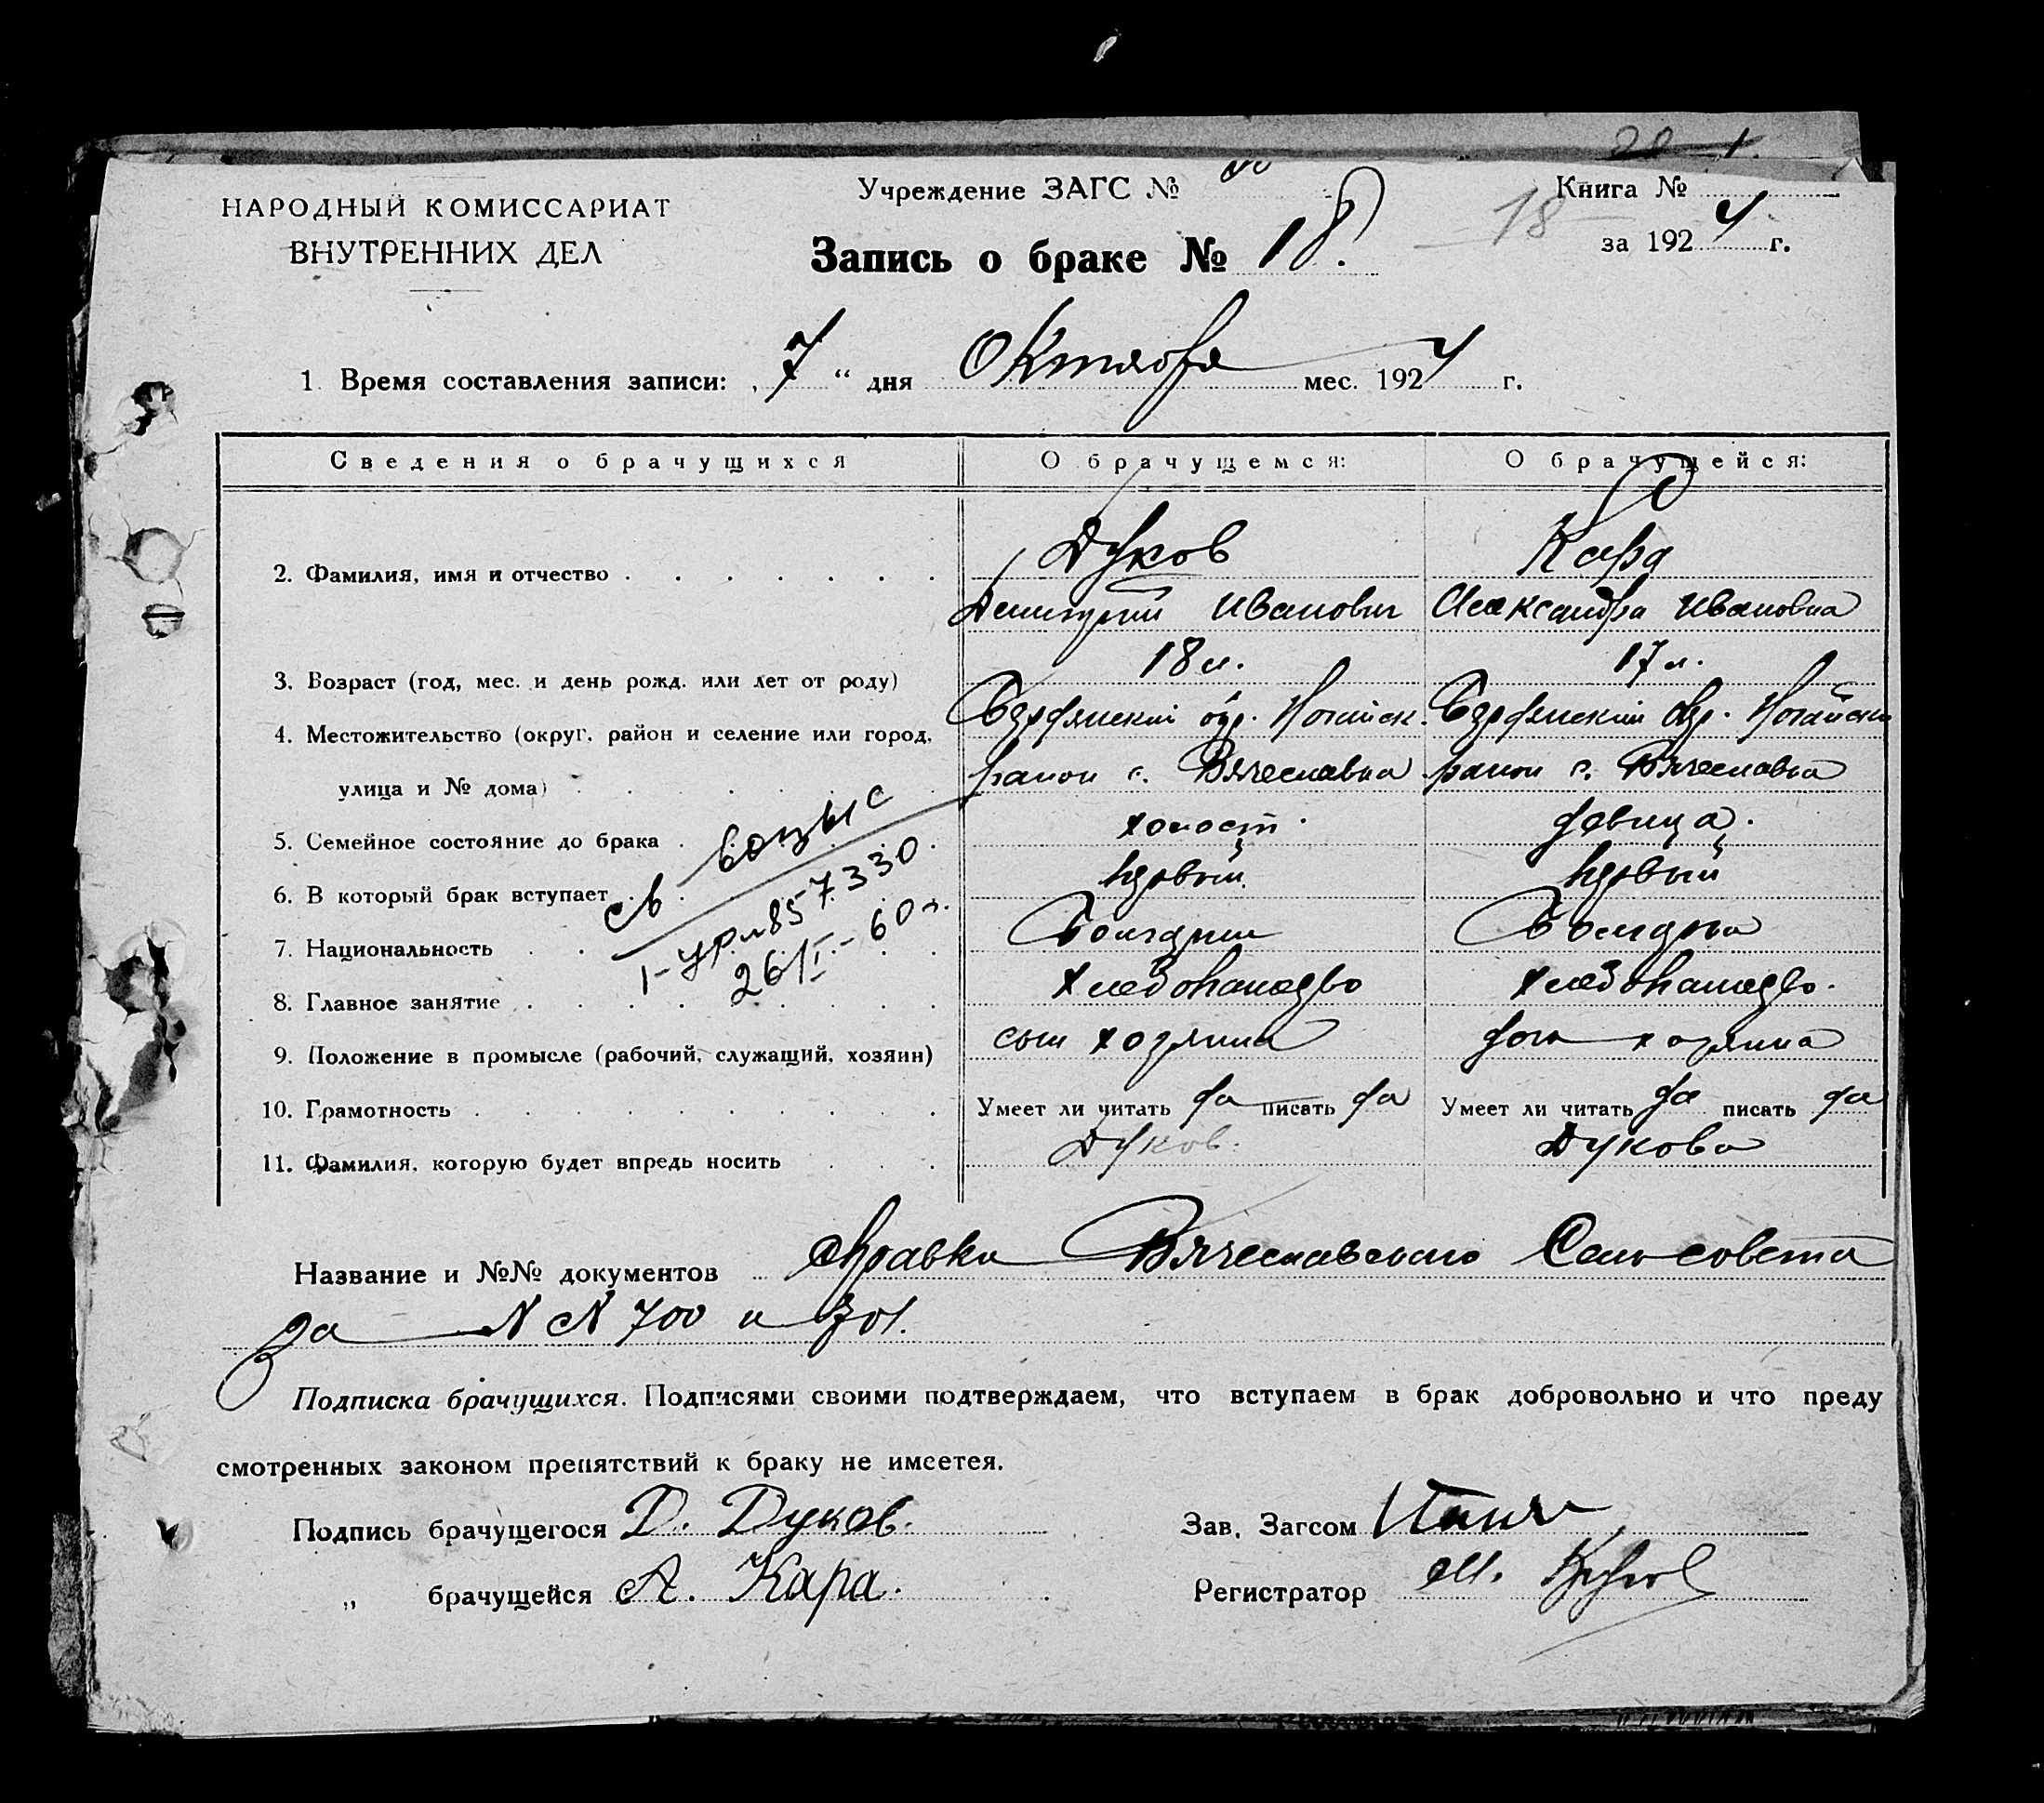 НАРОДНЫЙ КОМИССАРИАТ
ВНУТРЕННИХ ДЕЛ
Учреждение ЗАГС №
Книга №
за 1924 г.
18
Запись о браке № 18.
1. Время составления записи: „7“ дня Октября мес. 1924 г.
Сведения о брачущихся О брачущемся: О брачущейся:
2. Фамилия, имя и отчество Дуков Кара
Димитрий Иванович Александра Ивановна
3. Возраст (год, мес. и день рожд. или лет от роду) 18 л. 17 л.
4. Местожительство (округ, район и селение или город, Бердянский окр. Ногайск. Бердянский окр. Ногайск
улица и № дома) район с. Вячеславка район с. Вячеславка
5. Семейное состояние до брака холост. девица.
6. В который брак вступает первый первый
7. Национальность Болгарин Болгарка
8. Главное занятие хлебопашество хлебопашество.
9. Положение в промысле (рабочий, служащий, хозяин) сын хозяина дочь хозяина
10. Грамотность Умеет ли читать да писать да Умеет ли читать да писать да
11. Фамилия, которую будет впредь носить Дуков. Дукова
св
857330
26/I - 60 г.
Название и №№ документов справки Вячеславского Сельсовета
за N N 700 и 701.
Подписка брачущихся. Подписями своими подтверждаем, что вступаем в брак добровольно и что преду
смотренных законом препятствий к браку не имеетея.
Подпись брачущегося Д. Дуков. Зав. Загсом
„ брачущейся А. Кара. Регистратор